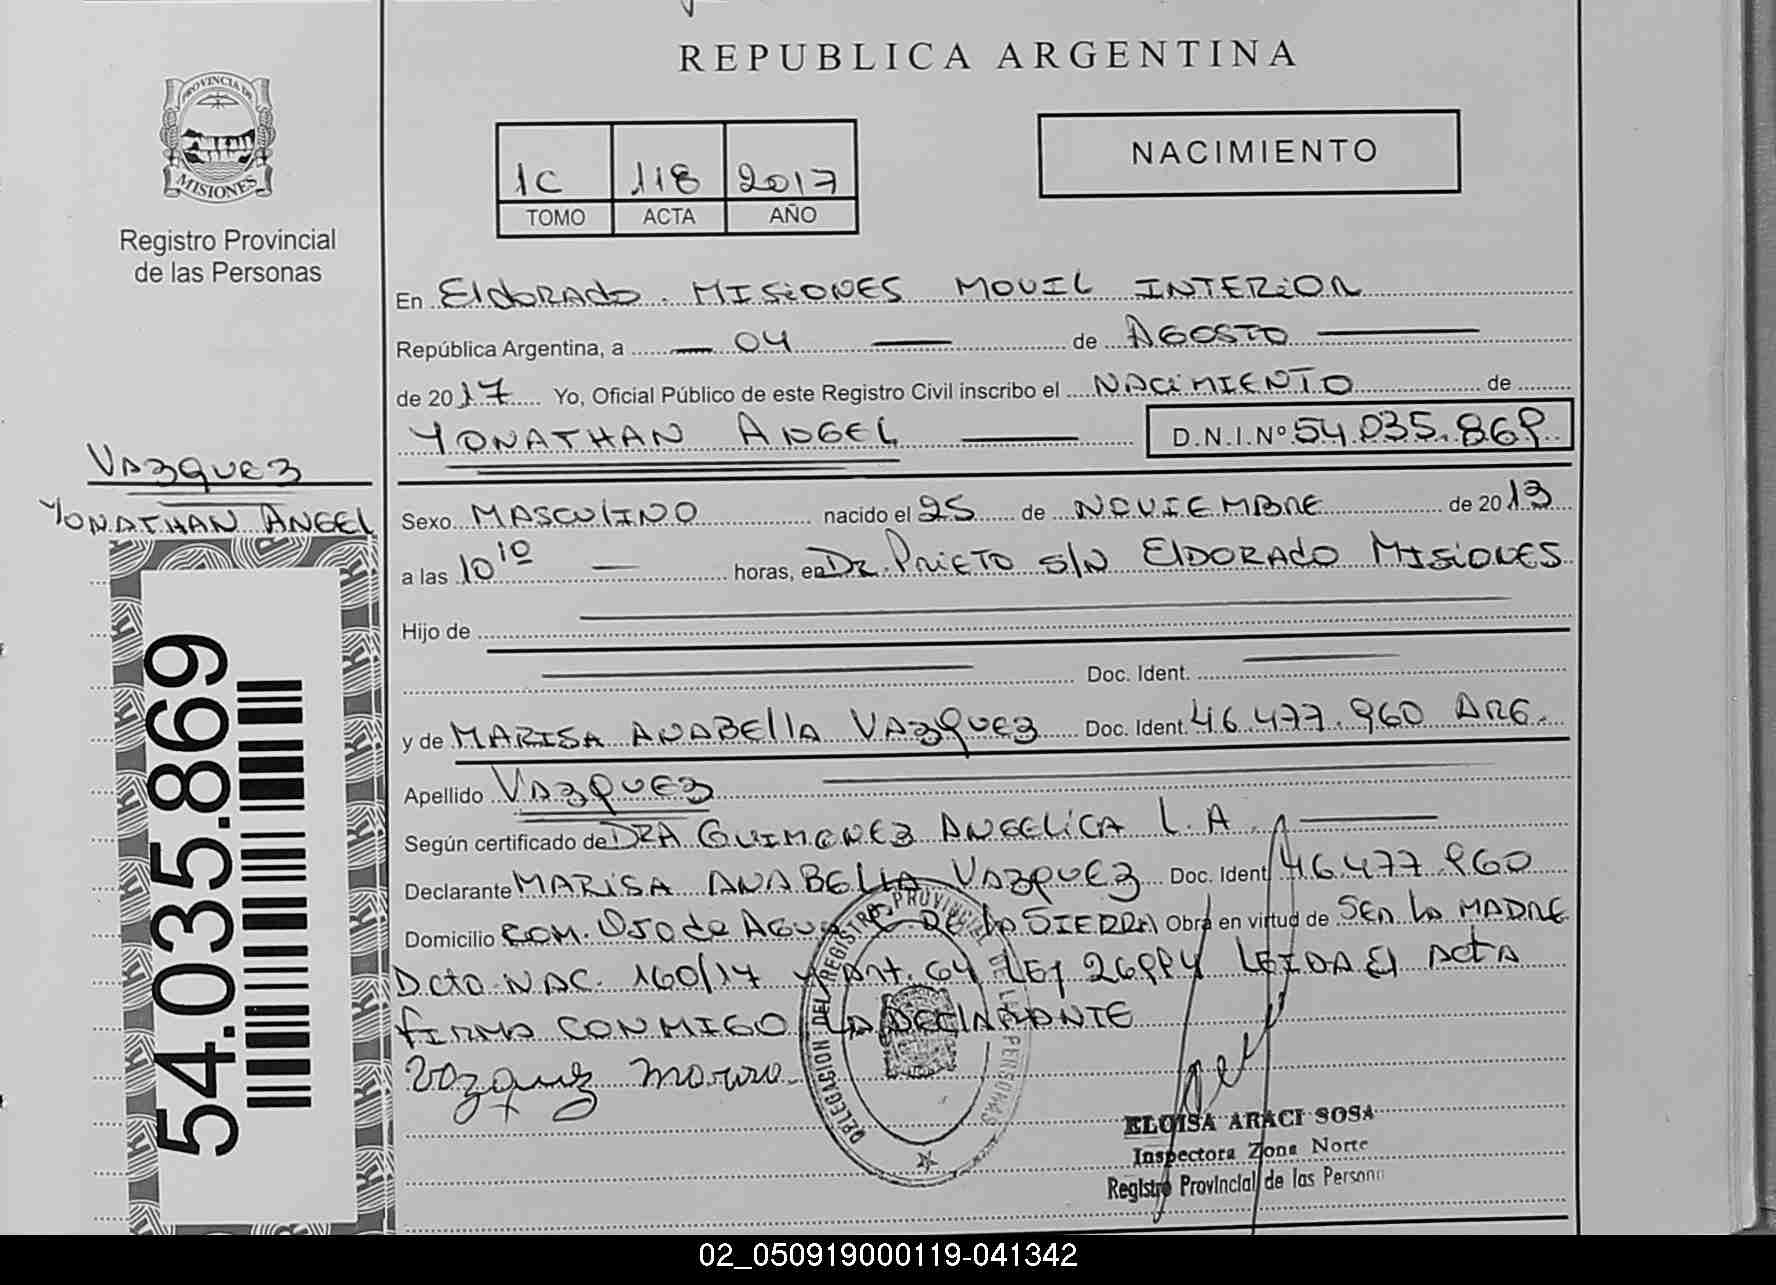 REPUBLICA ARGENTINA
PROVINCIA DE
MISIONES
Registro Provincial
de las Personas
1C 118 2017
TOMO ACTA AÑO
NACIMIENTO
En ElDORADO. MISIONES MOVIL INTERIOR
República Argentina, a 04 de AGOSTO
de 2017 Yo, Oficial Público de este Registro Civil inscribo el NACIMIENTO de
YONATHAN ANGEL D.N.I.Nº 54.035.869
VAZQUEZ
YONATHAN ANGEL
Sexo MASCULINO nacido el 25 de NOVIEMBRE de 2013
a las 10 10 horas, en Dr. PRIETO S/N ELDORADO MISIONES
Hijo de
Doc. Ident.
y de MARISA ANABELLA VAZQUEZ Doc. Ident. 46.477.960 ARG.
Apellido VAZQUEZ
Según certificado de DRA GUIMENEZ ANGELICA L.A
Declarante MARISA ANABELLA VAZQUEZ Doc. Ident 46.477.960
Domicilio COM. OJO de AGUA DE LA SIERRA Obra en virtud de SER LA MADRE
Dcto NAC. 160/17 y Art. 64 LEY 26994 LEIDA El ActA
firma CONMIGO LA DECLARANTE
Vazquez
DELEGACION DEL REGISTRO PROVINCIAL DE LAS PERSONAS
ELOISA ARACI SOSA
Inspectora Zona Norte
Registro Provincial de las Persona
54.035.869
02_050919000119-041342